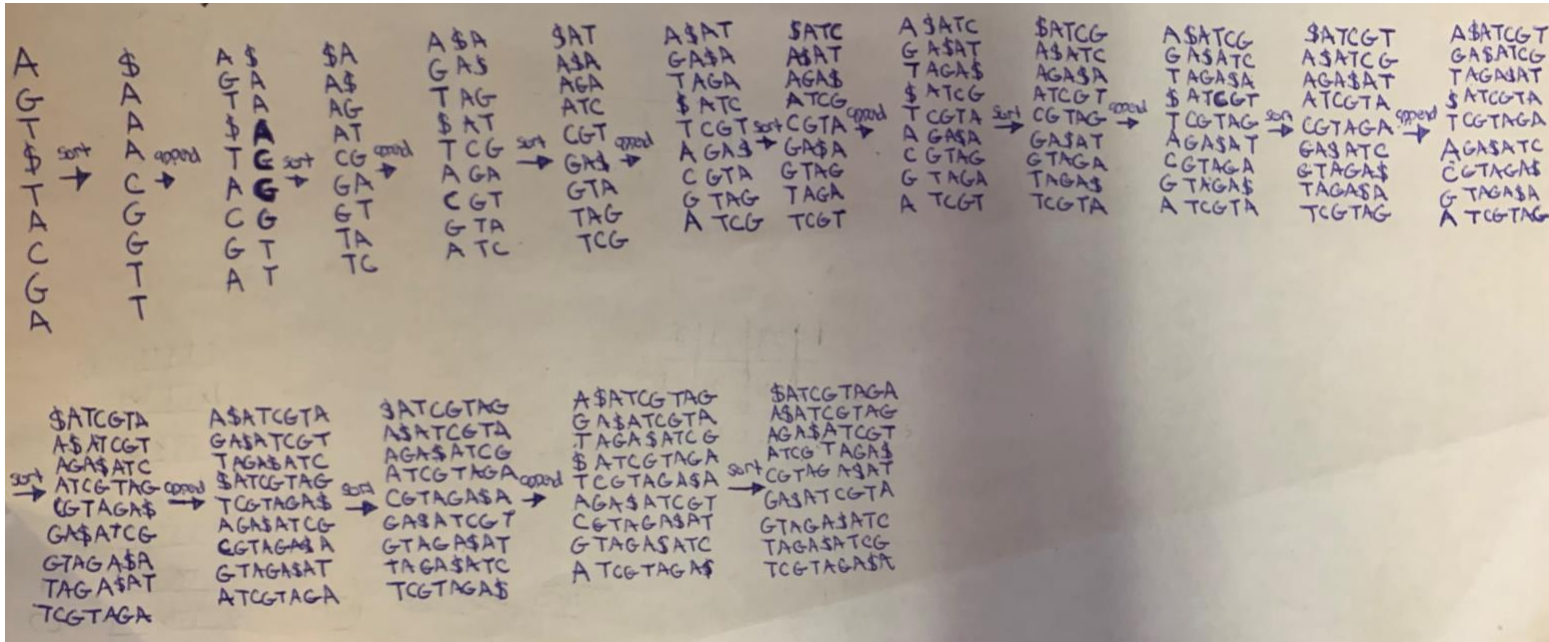 A
G
T
$
T
A
C
G
A
sort
$
A
A
A
C
G
G
T
T
append
A $
G A
T A
$ A
T C
A G
C G
G T
A T
sort
$A
A$
AG
AT
CG
GA
GT
TA
TC
append
A $A
G A$
T AG
$ AT
T CG
A GA
C GT
G TA
A TC
sort
$AT
A$A
AGA
ATC
CGT
GA$
GTA
TAG
TCG
append
A $AT
G A$A
T AGA
$ ATC
T CGT
A GA$
C GTA
G TAG
A TCG
sort
$ATC
A$AT
AGA$
ATCG
CGTA
GA$A
GTAG
TAGA
TCGT
append
A $ATC
G A$AT
T AGA$
$ ATCG
T CGTA
A GA$A
C GTAG
G TAGA
A TCGT
sort
$ATCG
A$ATC
AGA$A
ATCGT
CGTAG
GA$AT
GTAGA
TAGA$
TCGTA
append
A $ATCG
G A$ATC
T AGA$A
$ ATCGT
T CGTAG
A GA$AT
C GTAGA
G TAGA$
A TCGTA
sort
$ATCGT
A$ATCG
AGA$AT
ATCGTA
CGTAGA
GA$ATC
GTAGA$
TAGA$A
TCGTAG
append
A $ATCGT
G A$ATCG
T AGA$AT
$ ATCGTA
T CGTAGA
A GA$ATC
C GTAGA$
G TAGA$A
A TCGTAG
sort
$ATCGTA
A$ATCGT
AGA$ATC
ATCGTAG
CGTAGA$
GA$ATCG
GTAGA$A
TAGA$AT
TCGTAGA
append
A $ATCGTA
G A$ATCGT
T AGA$ATC
$ ATCGTAG
T CGTAGA$
A GA$ATCG
C GTAGA$A
G TAGA$AT
A TCGTAGA
sort
$ATCGTAG
A$ATCGTA
AGA$ATCG
ATCGTAGA
CGTAGA$A
GA$ATCGT
GTAGA$AT
TAGA$ATC
TCGTAGA$
append
A $ATCGTAG
G A$ATCGTA
T AGA$ATCG
$ ATCGTAGA
T CGTAGA$A
A GA$ATCGT
C GTAGA$AT
G TAGA$ATC
A TCGTAGA$
sort
$ATCGTAGA
A$ATCGTAG
AGA$ATCGT
ATCGTAGA$
CGTAGA$AT
GA$ATCGTA
GTAGA$ATC
TAGA$ATCG
TCGTAGA$A